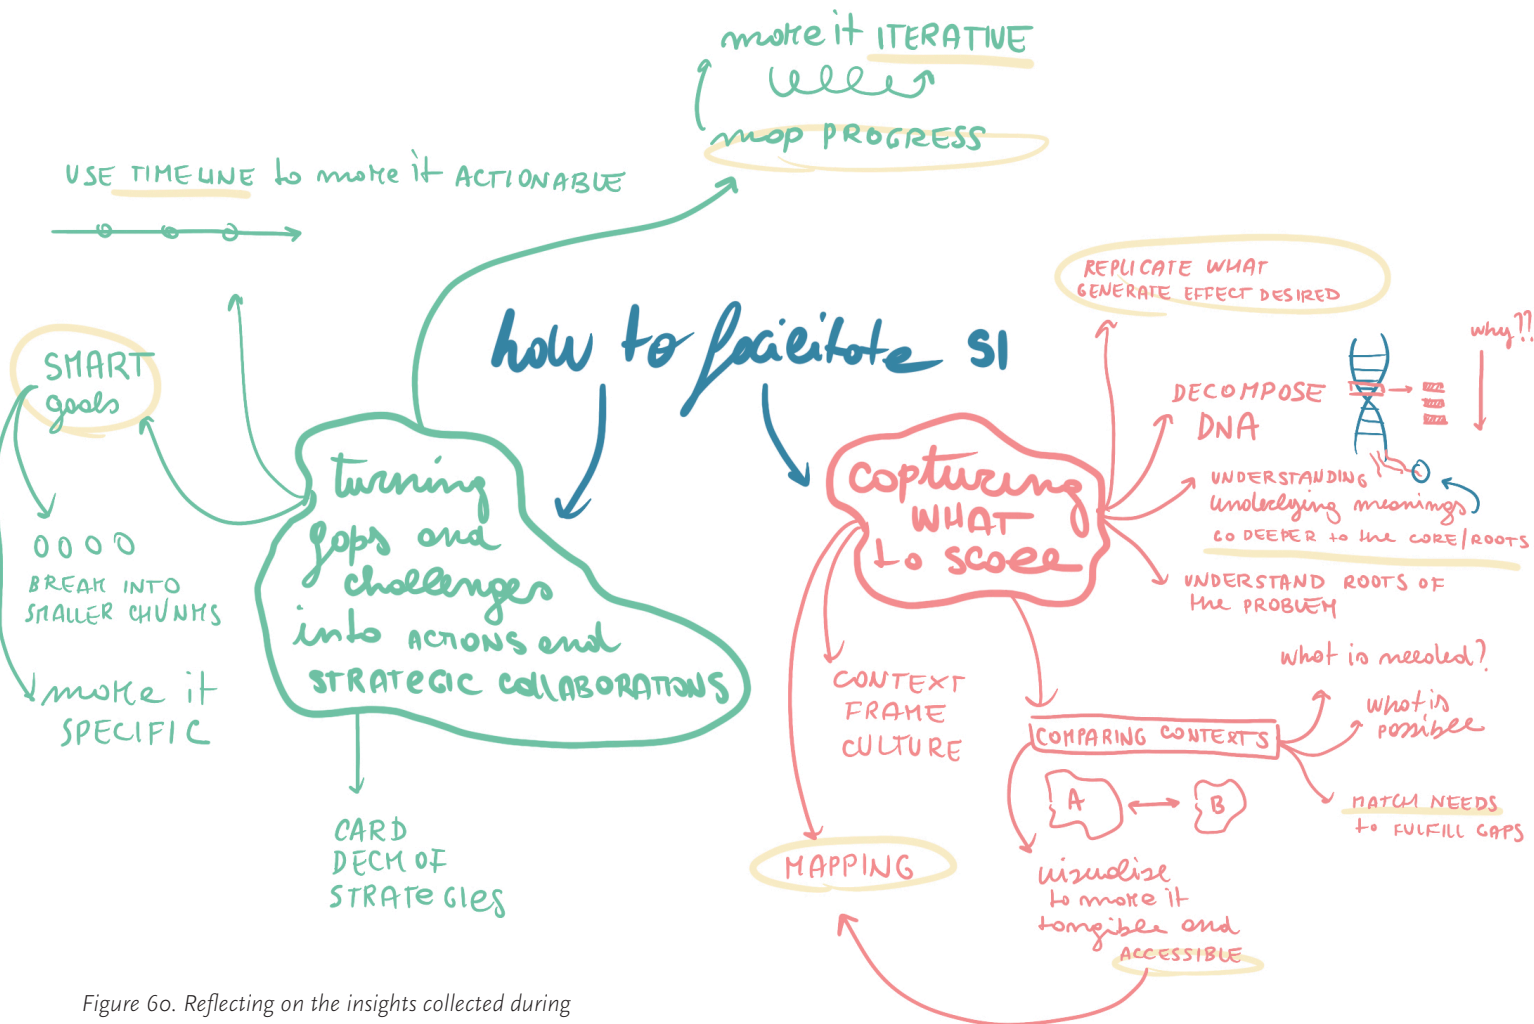 make it ITERATIVE
map PROGRESS
USE TIMELINE to make it ACTIONABLE
how to facilitate SI
SMART
goals
BREAK INTO
SMALLER CHUNKS
make it
SPECIFIC
turning
gaps and
challenges
into ACTIONS and
STRATEGIC COLLABORATIONS
CARD
DECK OF
STRATEGIES
capturing
WHAT
to SCALE
REPLICATE WHAT
GENERATE EFFECT DESIRED
DECOMPOSE
DNA
why??
UNDERSTANDING
underlying meanings
GO DEEPER to the CORE/ROOTS
UNDERSTAND ROOTS OF
the PROBLEM
CONTEXT
FRAME
CULTURE
MAPPING
COMPARING CONTEXTS
what is needed?
what is
possible
MATCH NEEDS
to FULFILL GAPS
A
B
visualise
to make it
tangible and
ACCESSIBLE
Figure 60. Reflecting on the insights collected during